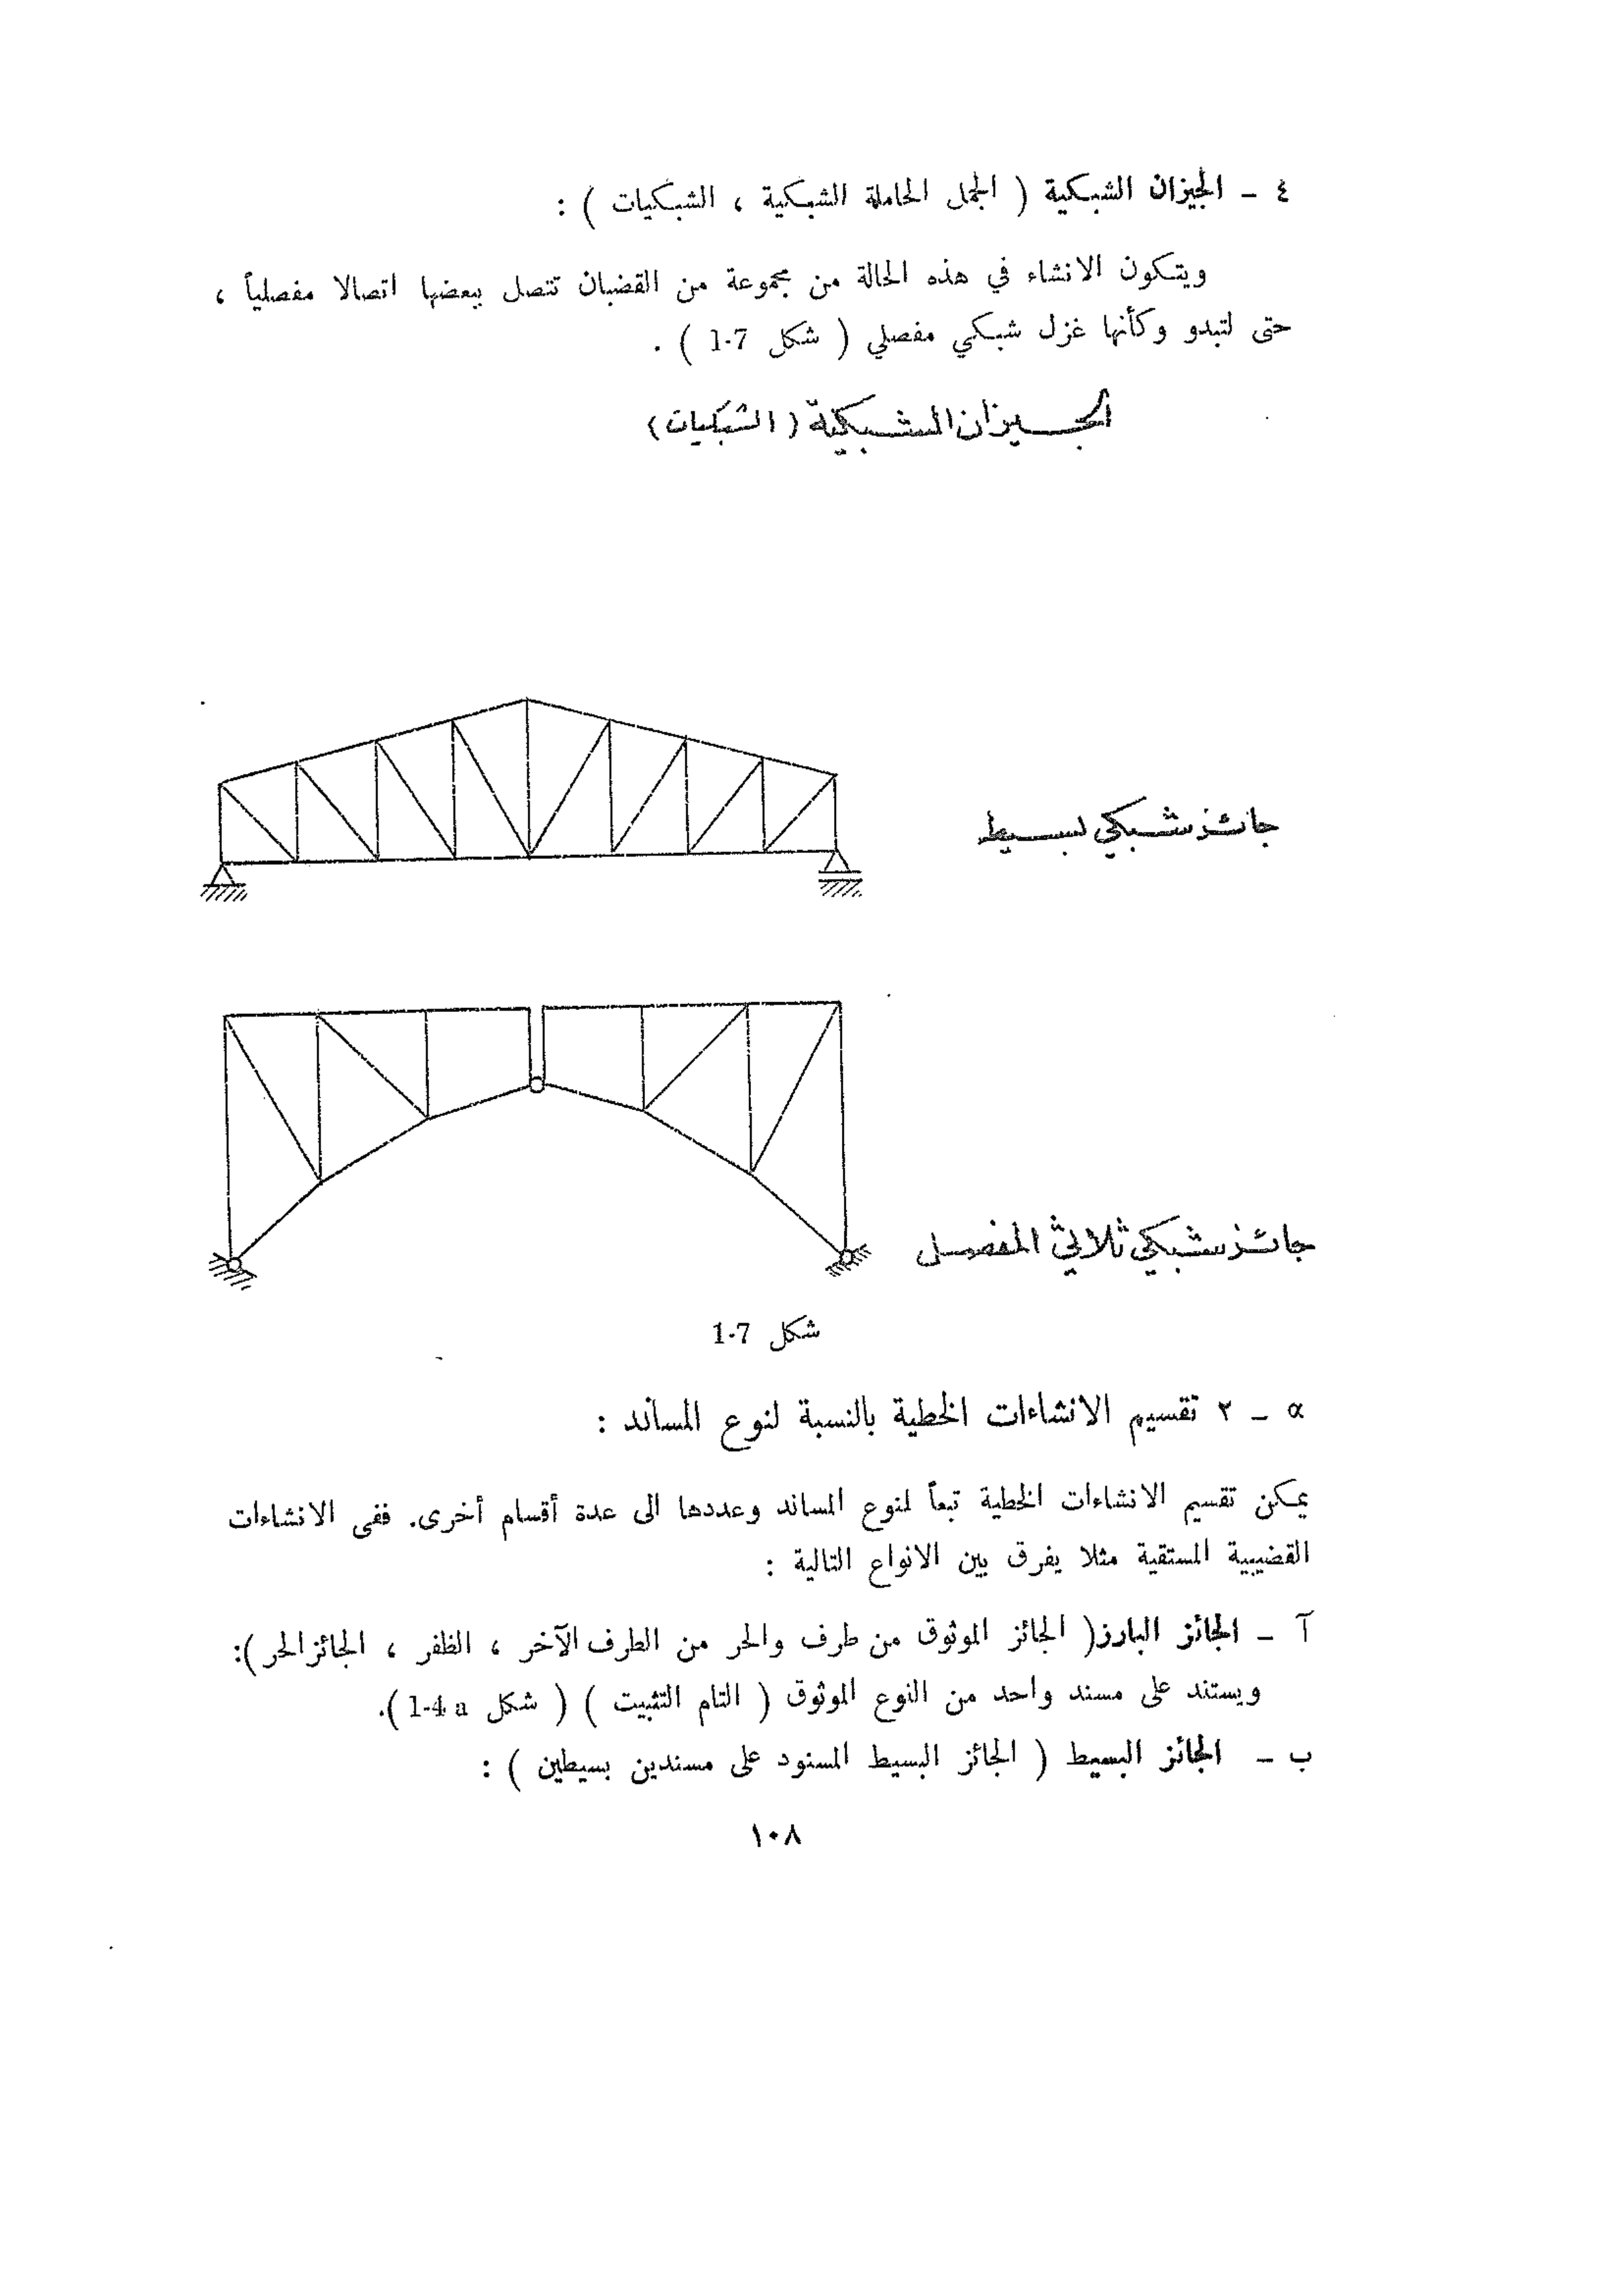 ٤ ــ الجيزان الشبكية ( الجمل الحاملة الشبكية ، الشبكيات ) :
ويتكون الانشاء في هذه الحالة من مجموعة من القضبان تتصل ببعضها اتصالا مفصلياً ،
حتى لتبدو وكأنها غزل شبكي مفصلي ( شكل 7-1 ) .
الجيزان الشبكية ( الشبكيات )
جائز شبكي بسيط
جائز شبكي ثلاثي المفصل
شكل 7-1
α ــ ٢ تقسيم الانشاءات الخطية بالنسبة لنوع المساند :
يمكن تقسيم الانشاءات الخطية تبعاً لنوع المساند وعددها الى عدة أقسام أخرى. ففي الانشاءات
القضيبية المستقية مثلا يفرق بين الانواع التالية :
آ ــ الجائز البارز ( الجائز الموثوق من طرف والحر من الطرف الآخر ، الظفر ، الجائز الحر ):
ويستند على مسند واحد من النوع الموثوق ( التام التثبيت ) ( شكل 1-4 a ).
ب ــ الجائز البسيط ( الجائز البسيط المسنود على مسندين بسيطين ) :
١٠٨